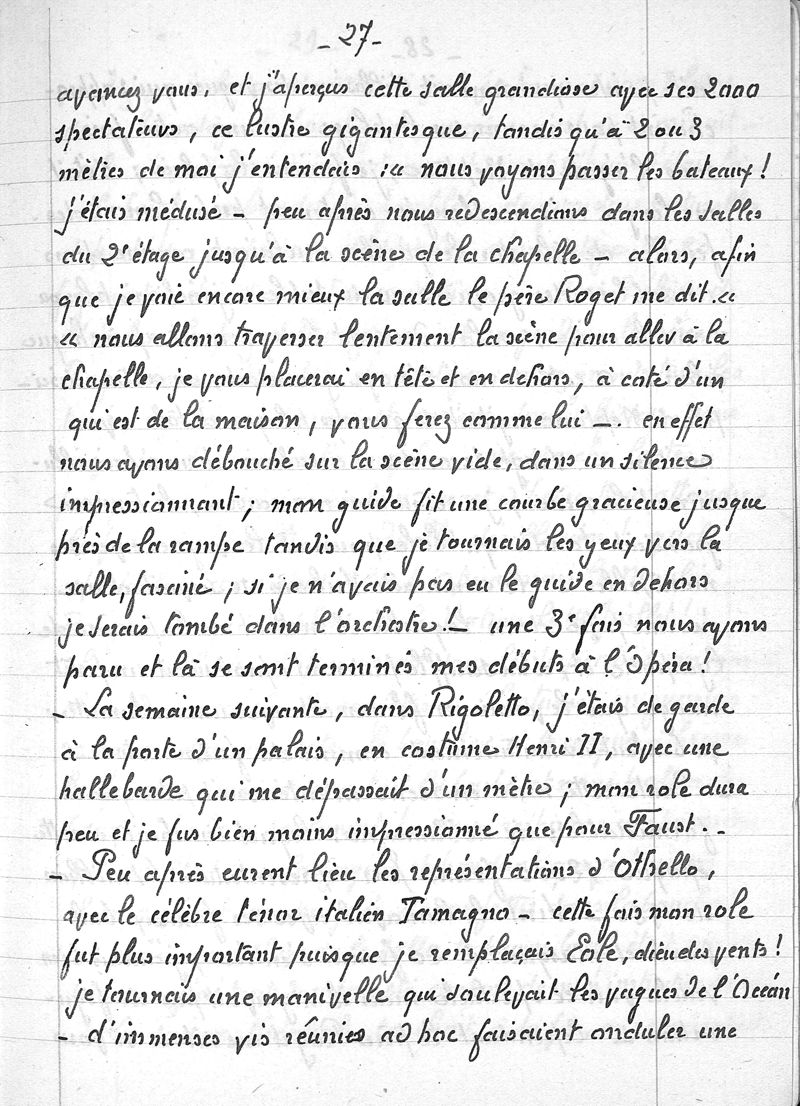 - 27 -
avancez vous, et j'aperçus cette salle grandiose avec ses 2000
spectateurs, ce lustre gigantesque, tandis qu'à 2 ou 3
mètres de moi j'entendais : « nous voyons passer les bateaux !
j'étais médusé - peu après nous redescendions dans les salles
du 2e étage jusqu'à la scène de la chapelle - alors, afin
que je voie encore mieux la salle le père Roget me dit. «
« nous allons traverser lentement la scène pour aller à la
chapelle, je vous placerai en tête et en dehors, à coté d'un
qui est de la maison, vous ferez comme lui -. en effet
nous avons débouché sur la scène vide, dans un silence
impressionnant ; mon guide fit une courbe gracieuse jusque
près de la rampe tandis que je tournais les yeux vers la
salle, fasciné ; si je n'avais pas eu le guide en dehors
je serais tombé dans l'orchestre ! - une 3e fois nous avons
paru et là se sont terminés mes débuts à l'Opéra !
- La semaine suivante, dans Rigoletto, j'étais de garde
à la porte d'un palais, en costume Henri II, avec une
hallebarde qui me dépassait d'un mètre ; mon role dura
peu et je fus bien moins impressionné que pour Faust. -
- Peu après eurent lieu les représentations d'Othello,
avec le célèbre ténor italien Tamagno - cette fois mon role
fut plus important puisque je remplaçais Eole, dieu des vents !
je tournais une manivelle qui soulevait les vagues de l'Océan
- d'immenses vis réunies ad hoc faisaient onduler une